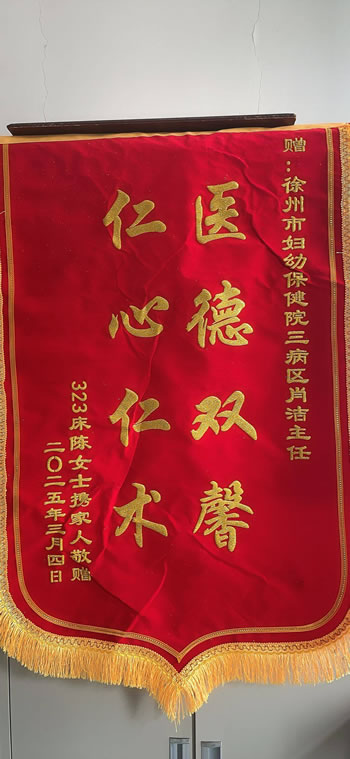 赠:徐州市妇幼保健院三病区肖洁主任
医德双馨
仁心仁术
323床陈女士携家人敬赠
二〇二五年三月四日